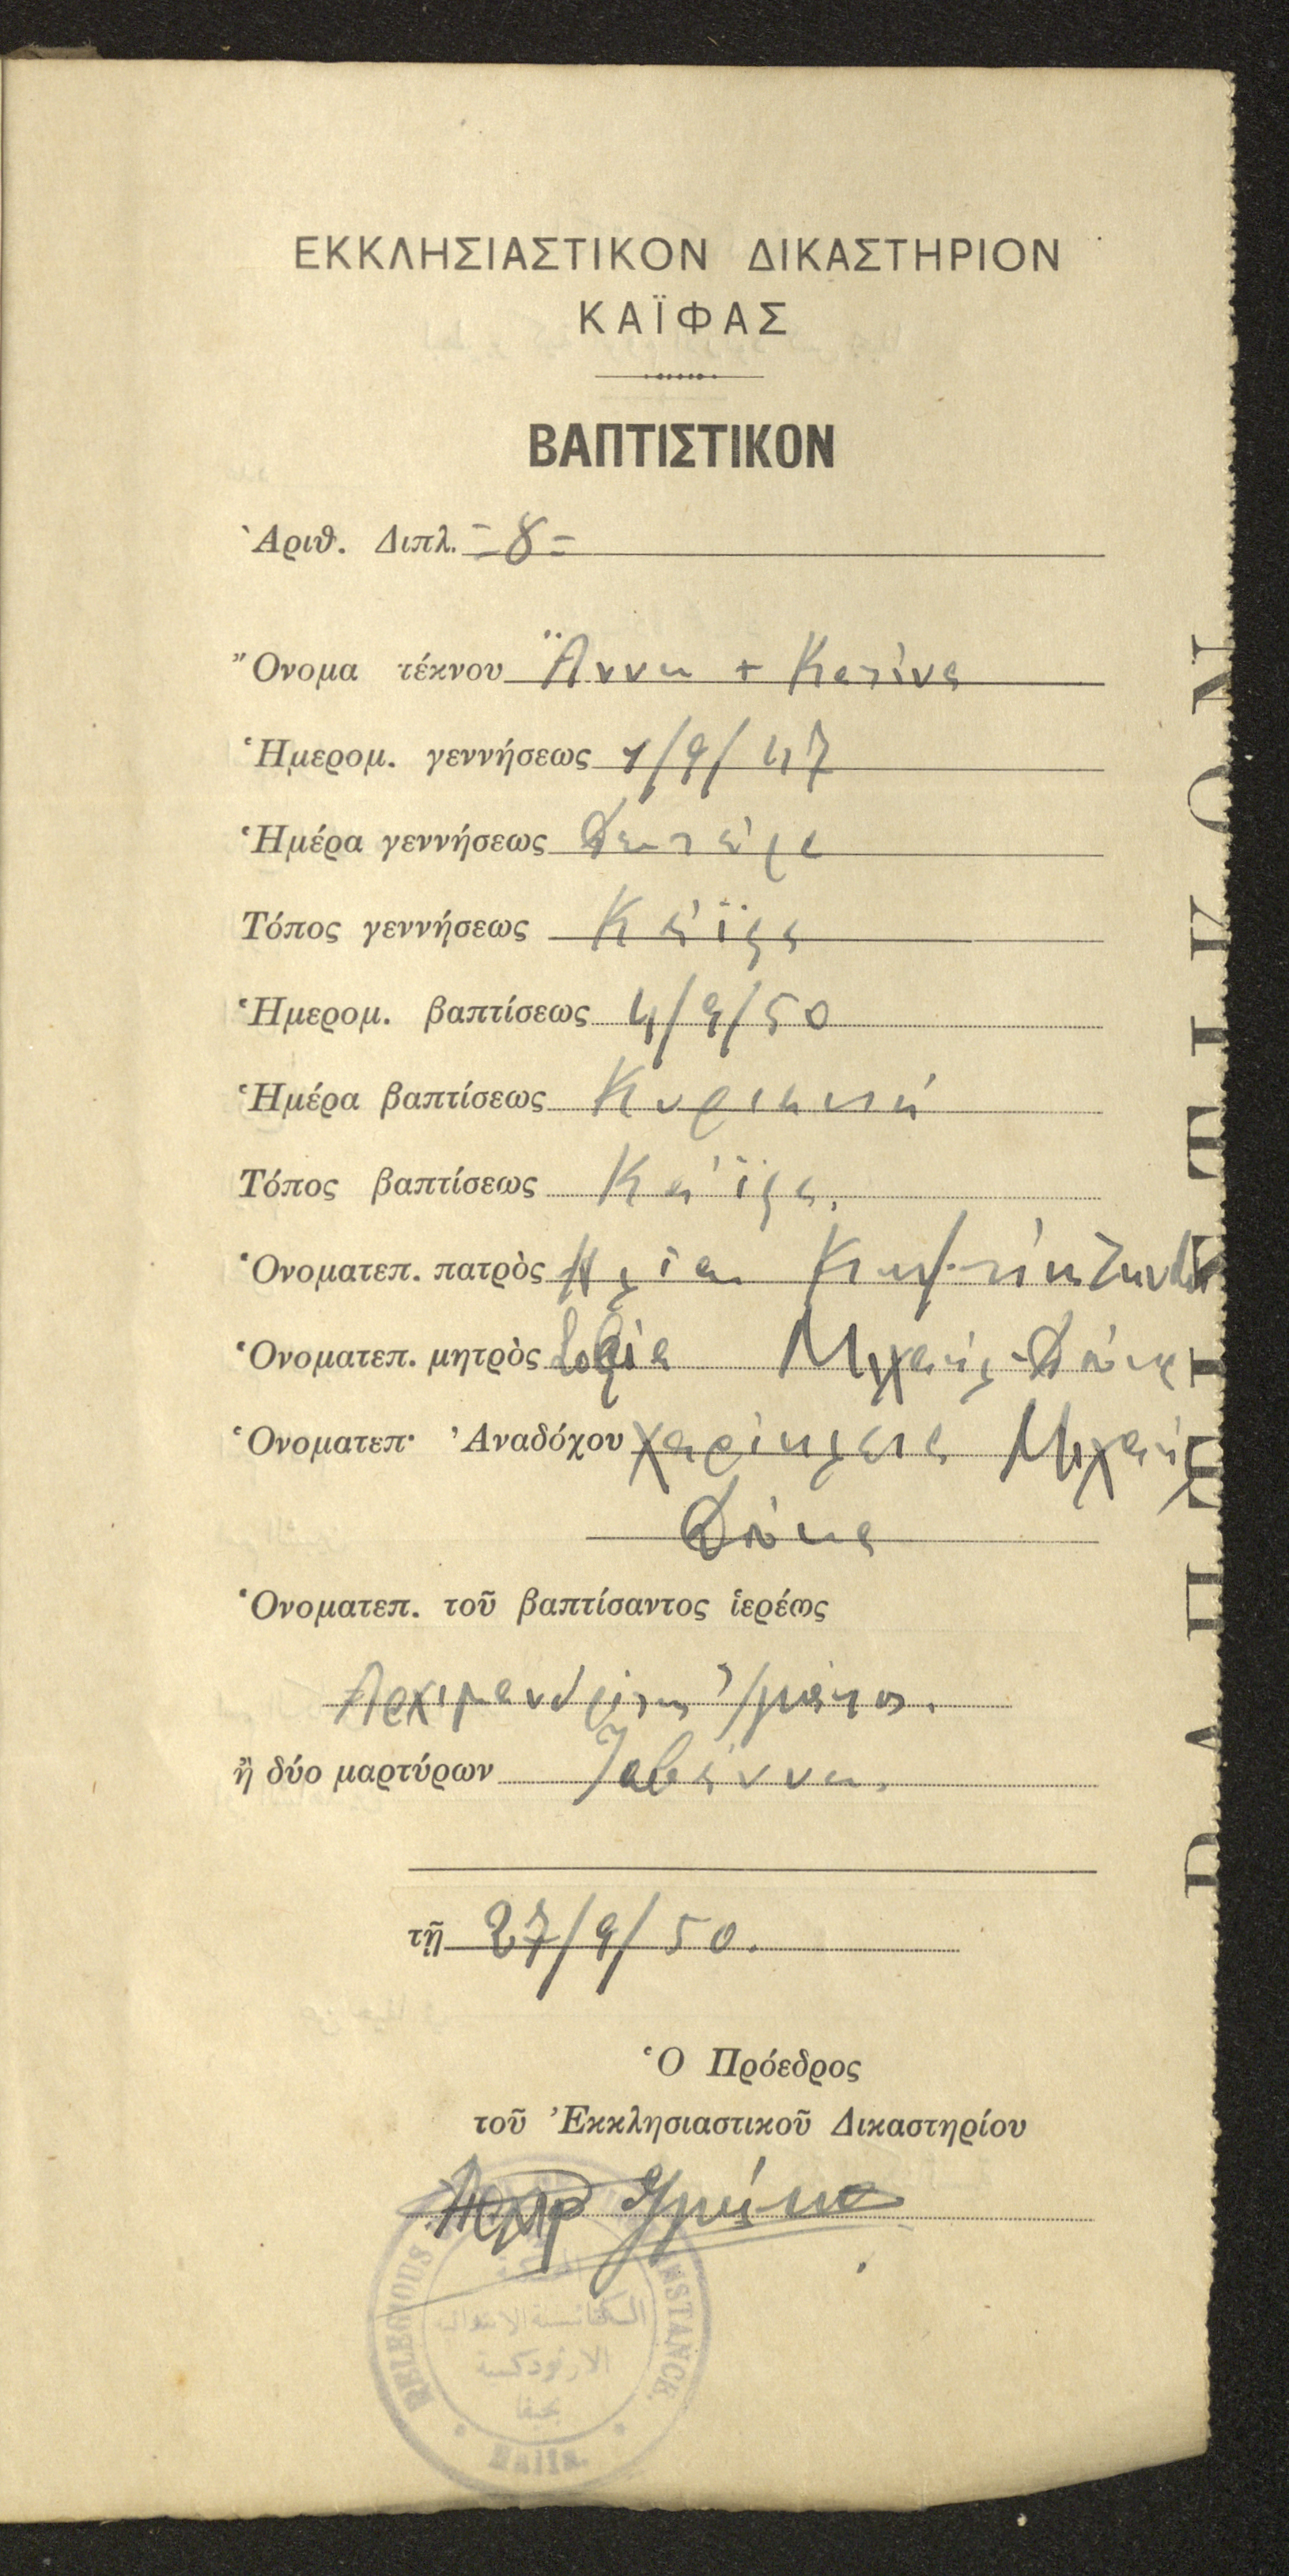 ΕΚΚΛΗΣΙΑΣΤΙΚΟΝ ΔΙΚΑΣΤΗΡΙΟΝ
ΚΑΪΦΑΣ
ΒΑΠΤΙΣΤΙΚΟΝ
Ἀριθ. Διπλ. =8=
Ὄνομα τέκνου Ἄννα + Κατίνα
Ἡμερομ. γεννήσεως 1/9/47
Ἡμέρα γεννήσεως Δευτέρα
Τόπος γεννήσεως Κάϊφα
Ἡμερομ. βαπτίσεως 4/9/50
Ἡμέρα βαπτίσεως Κυριακή
Τόπος βαπτίσεως Κάϊφα.
Ὀνοματεπ. πατρὸς Ηλία
Ὀνοματεπ. μητρὸς Σοφία Μιχαήλ Δούκα
Ὀνοματεπ· Ἀναδόχου Χαρίκλεια Μιχαήλ
Δούκα
Ὀνοματεπ. τοῦ βαπτίσαντος ἱερέως
Αρχιμανδρίτης Ιγνάτιος.
ἢ δύο μαρτύρων
τῇ 27/9/50.
Ὁ Πρόεδρος
τοῦ Ἐκκλησιαστικοῦ Δικαστηρίου
RELEGIOUS INSTANCE
الكنائسية الابتدائية
الارثوذكسية
بحيفا
Haifa.
ΒΑΠΤΙΣΤΙΚΟΝ